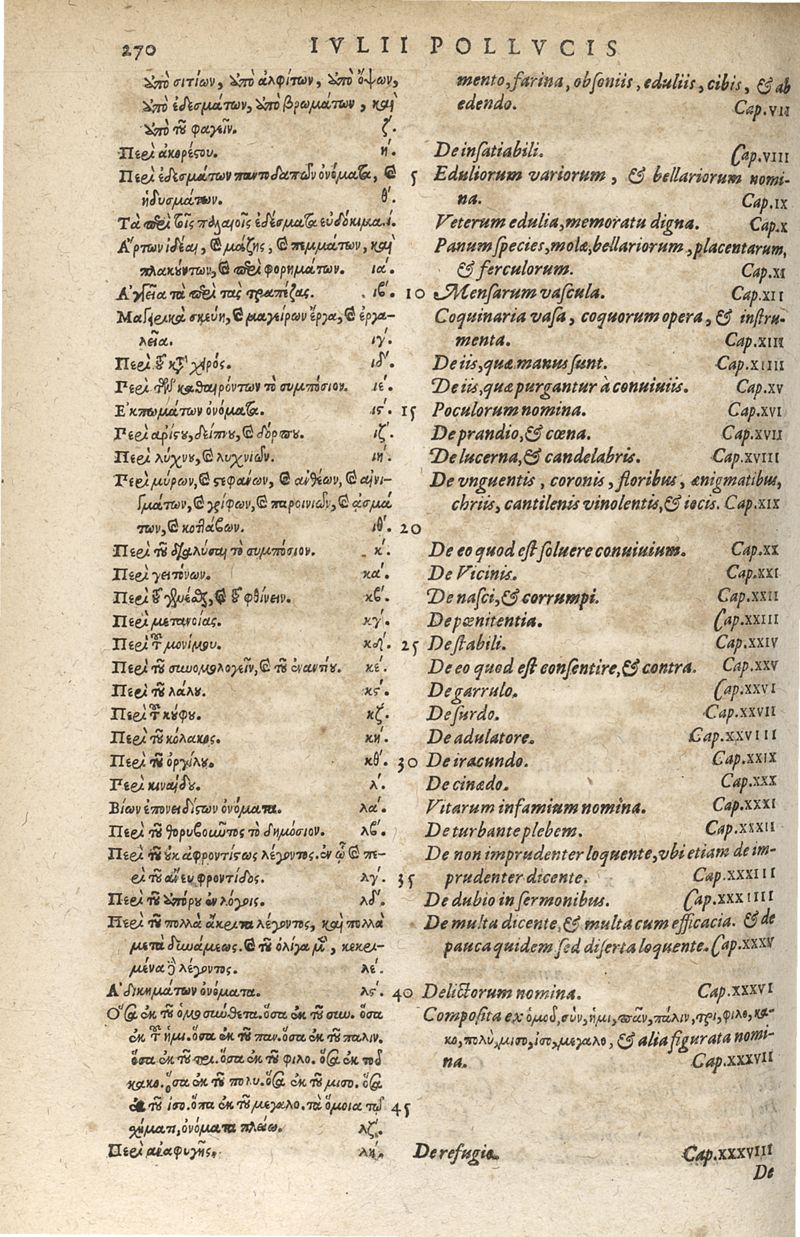 270 IVLII POLLVCIS
ὑπὸ σιτίων, ὑπὸ ἀλφίτων, ὑπὸ ὄψων,
ὑπὸ ἐδεσμάτων, ὑπὸ βρωμάτων, καὶ
ὑπὸ τοῦ φαγεῖν. ζʹ.
Περὶ ἀκορέστου. ηʹ.
Περὶ ἐδεσμάτων παντοδαπῶν ὀνόματα, καὶ
ἡδυσμάτων. θʹ.
Τὰ περὶ τοῖς παλαιοῖς ἐδέσματα εὐδόκιμα. ί.
Ἄρτων ἰδέαι, καὶ μάζης, καὶ πεμμάτων, καὶ
πλακούντων, καὶ περὶ φορημάτων. ιαʹ.
Ἀγγεῖα τὰ περὶ τὰς τραπέζας. ιβʹ.
Μαγειρικὰ σκεύη, καὶ μαγείρων ἔργα, καὶ ἐργα-
λεῖα. ιγʹ.
Περὶ τῶν κατὰ χειρός. ιδʹ.
Περὶ τῶν καθαιρόντων τὸ συμπόσιον. ιεʹ.
Ἐκπωμάτων ὀνόματα. ιςʹ.
Περὶ ἀρίστου, δείπνου, καὶ δόρπου. ιζʹ.
Περὶ λύχνου, καὶ λυχνιῶν. ιηʹ.
Περὶ μύρων, καὶ στεφάνων, καὶ ἀνθέων, καὶ αἰνι-
γμάτων, καὶ γρίφων, καὶ παροινιῶν, καὶ ᾀσμά
των, καὶ κοττάβων. ιθʹ.
Περὶ τοῦ διαλύσαι τὸ συμπόσιον. κʹ.
Περὶ γειτόνων. καʹ.
Περὶ τοῦ γενέσθαι, καὶ τοῦ φθίνειν. κβʹ.
Περὶ μετανοίας. κγʹ.
Περὶ τοῦ μονίμου. κδʹ.
Περὶ τοῦ συνομολογεῖν, καὶ τοῦ ἐναντίου. κεʹ.
Περὶ τοῦ λάλου. κςʹ.
Περὶ τοῦ κωφοῦ. κζʹ.
Περὶ τοῦ κόλακος. κηʹ.
Περὶ τοῦ ὀργίλου. κθʹ.
Περὶ κιναίδου. λʹ.
Βίων ἐπονειδίστων ὀνόματα. λαʹ.
Περὶ τοῦ θορυβοῦντος τὸ δημόσιον. λβʹ.
Περὶ τοῦ οὐκ ἀφροντίστως λέγοντος. ἐν ᾧ καὶ πε-
ρὶ τοῦ ἄνευ φροντίδος. λγʹ.
Περὶ τοῦ ἀπόρου ἐν λόγοις. λδʹ.
Περὶ τοῦ πολλὰ ἄκριτα λέγοντος, καὶ πολλὰ
μετὰ δυνάμεως. καὶ τοῦ ὀλίγα μὲν, κεκρι-
μένα δὲ λέγοντος. λεʹ.
Ἀδικημάτων ὀνόματα. λςʹ.
Ὅσα ἐκ τοῦ ὁμοῦ σύνθετα. ὅσα ἐκ τοῦ συν. ὅσα
ἐκ τοῦ ἡμι. ὅσα ἐκ τοῦ παν. ὅσα ἐκ τοῦ παλιν.
ὅσα ἐκ τοῦ τρι. ὅσα ἐκ τοῦ φιλο. ὅσα ἐκ τοῦ
κακο. ὅσα ἐκ τοῦ πολυ. ὅσα ἐκ τοῦ μισο. ὅσα
ἐκ τοῦ ἰσο. ὅσα ἐκ τοῦ μεγαλο. τὰ ὅμοια τῷ
ὀνόματα πλείω. λζʹ.
Περὶ ἀναφυγῆς. ληʹ.
5
10
15
20
25
30
35
40
45
mento, farina, obsoniis, eduliis, cibis, & ab
edendo. Cap. VII
De insatiabili. Cap. VIII
Eduliorum variorum, & bellariorum nomi-
na. Cap. IX
Veterum edulia, memoratu digna. Cap. X
Panum species, molæ, bellariorum, placentarum,
& ferculorum. Cap. XI
Mensarum vascula. Cap. XII
Coquinaria vasa, coquorum opera, & instru-
menta. Cap. XIII
De iis, quæ manus sunt. Cap. XIIII
De iis, quæ purgantur à conuiuiis. Cap. XV
Poculorum nomina. Cap. XVI
De prandio, & cœna. Cap. XVII
De lucerna, & candelabris. Cap. XVIII
De vnguentis, coronis, floribus, ænigmatibus,
chriis, cantilenis vinolentis, & iocis. Cap. XIX
De eo quod est soluere conuiuium. Cap. XX
De Vicinis. Cap. XXI
De nasci, & corrumpi. Cap. XXII
De pœnitentia. Cap. XXIII
De stabili. Cap. XXIV
De eo quod est consentire, & contra. Cap. XXV
De garrulo. Cap. XXVI
De surdo. Cap. XXVII
De adulatore. Cap. XXVIII
De iracundo. Cap. XXIX
De cinædo. Cap. XXX
Vitarum infamium nomina. Cap. XXXI
De turbante plebem. Cap. XXXII
De non imprudenter loquente, vbi etiam de im-
prudenter dicente. Cap. XXXIII
De dubio in sermonibus. Cap. XXXIIII
De multa dicente, & multa cum efficacia. & de
pauca quidem sed diserta loquente. Cap. XXXV
Delictorum nomina. Cap. XXXVI
Composita ex ὁμοῦ, σύν, ἡμι, πᾶν, πάλιν, τρι, φιλο, κα-
κο, πολὺ, μισο, ἰσο, μεγαλο, & alia figurata nomi-
na. Cap. XXXVII
De refugio. Cap. XXXVIII
De